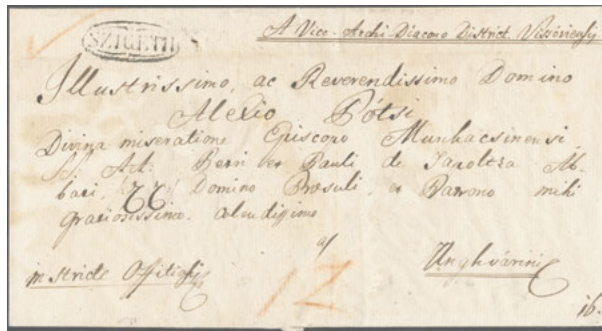 SZIGETH
A Vice-Archi-Diacono District. Vissoviensis
Illustrissimo, ac Reverendissimo Domino
Alexio Potsi
Divina miseratione Episcopo Munkacsinensi
SS. App. Petri et Pauli de Tapoltza Ab-
bati, Domino Praesuli, et Patrono mihi
gratiosissimo colendissimo
a/
Unghvarini
in stricte Offitiosis
12
ib.